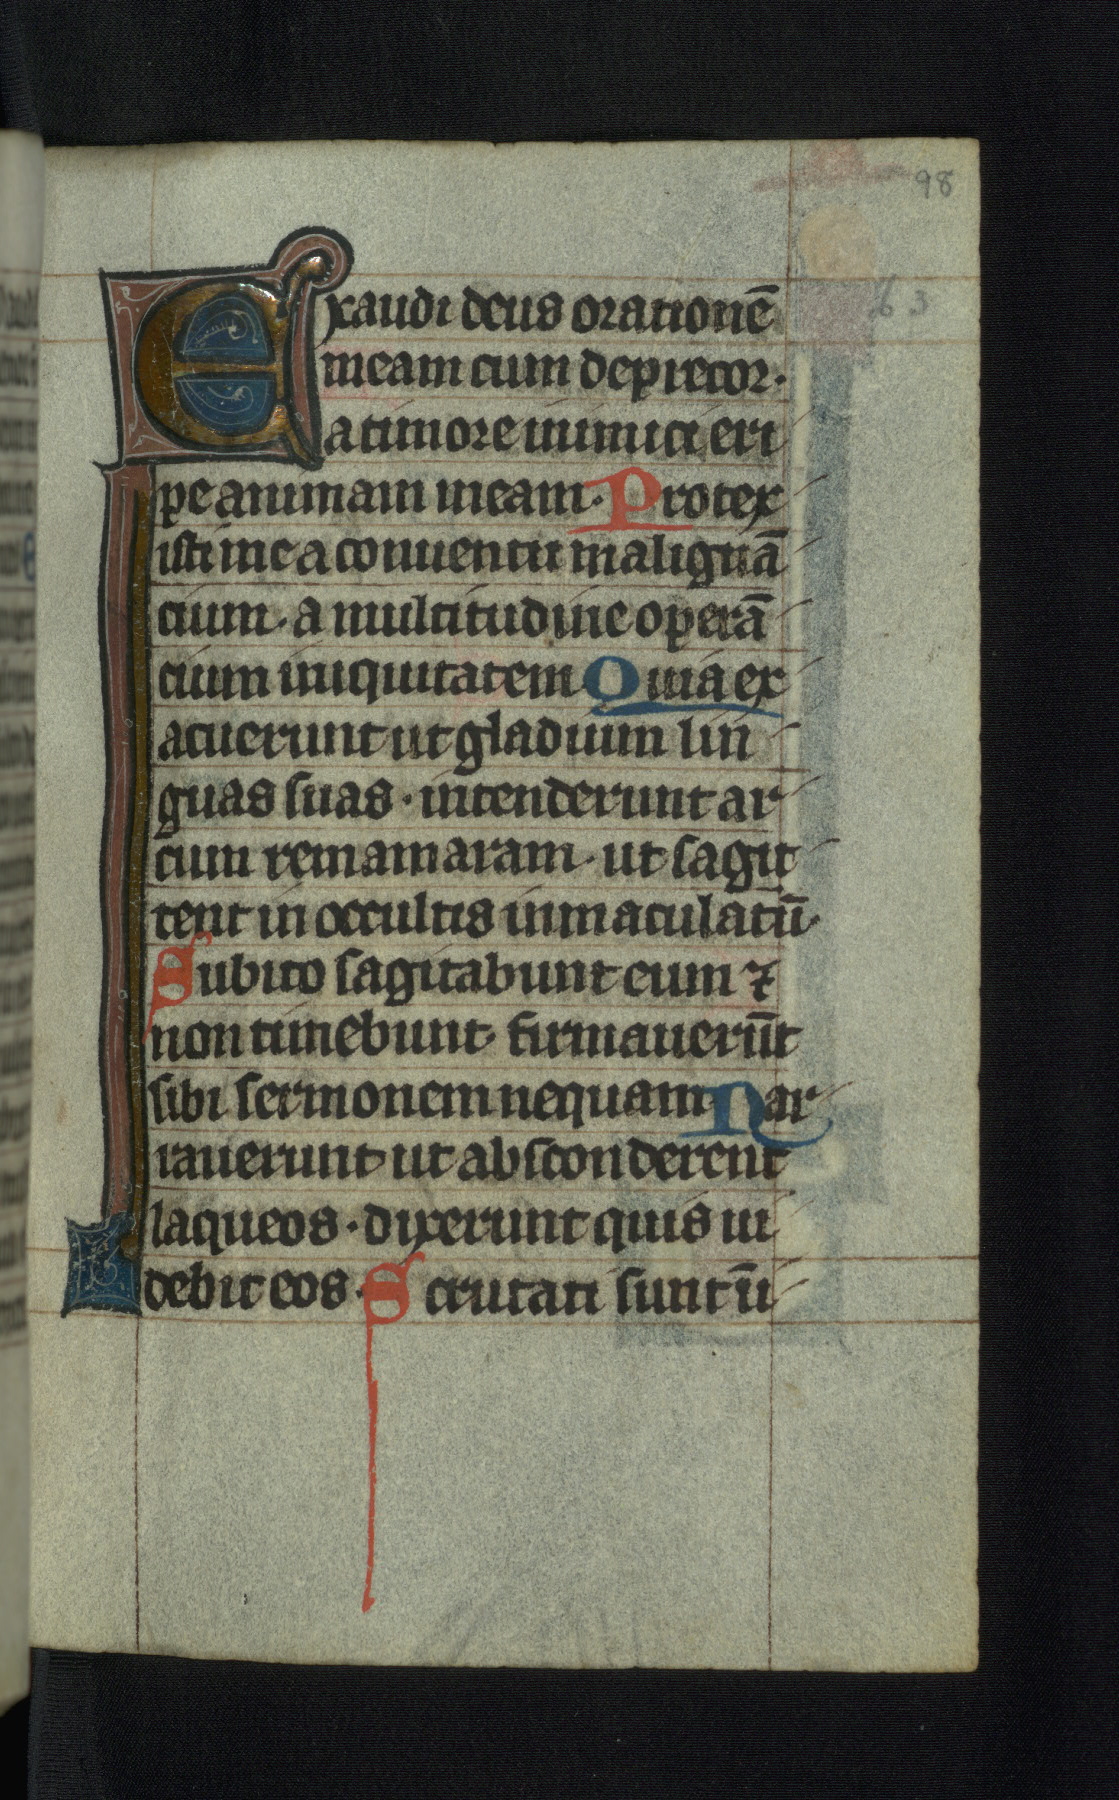 98
63
Exaudi deus orationē
meam cum deprecor.
a timore inimici eri
pe animam meam. Protex
isti me a conuentu malignā
cium. a multitudine operā
cium iniquitatem Quia ex
acuerunt ut gladium lin
guas suas. intenderunt ar
cum rem amaram. ut sagit
tent in occultis inmaculatū.
Subito sagitabunt eum ⁊
non timebunt. firmauerūt
sibi sermonem nequam Nar
rauerunt ut absconderent
laqueos. dixerunt quis ui
debit eos. Scrutati sunt ū